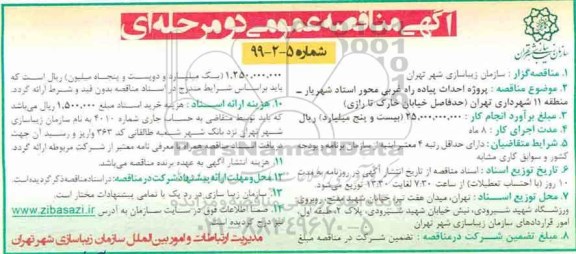 آگهی مناقصه عمومی دو مرحله‌ای
شماره ۵-۲-۹۹
سازمان زیباسازی شهر تهران
۱. مناقصه‌گزار : سازمان زیباسازی شهر تهران
۲. موضوع مناقصه : پروژه احداث پیاده راه غربی محور استاد شهریار _
منطقه ۱۱ شهرداری تهران (حدفاصل خیابان خارک تا رازی)
۳. مبلغ برآورد انجام کار : ۲۵,۰۰۰,۰۰۰,۰۰۰ (بیست و پنج میلیارد) ریال
۴. مدت اجرای کار : ۸ ماه
۵. شرایط متقاضیان : دارای حداقل رتبه ۴ معتبر ابنیه از سازمان برنامه و بودجه
کشور و سوابق کاری مشابه
۶. تاریخ توزیع اسناد : اسناد مناقصه از تاریخ انتشار آگهی در روزنامه به مدت
۱۰ روز (با احتساب تعطیلات) از ساعت ۷:۳۰ لغایت ۱۳:۳۰ توزیع می‌شود.
۷. محل توزیع اسناد : تهران، میدان هفت تیر، خیابان شهید مفتح، روبروی
ورزشگاه شهید شیرودی، نبش خیابان شهید شیرودی، پلاک ۲، طبقه اول
امور قراردادهای سازمان زیباسازی شهر تهران
۸. مبلغ تضمین شرکت در مناقصه : تضمین شرکت در مناقصه مبلغ
۱,۲۵۰,۰۰۰,۰۰۰ (یک میلیارد و دویست و پنجاه میلیون) ریال است که
باید براساس شرایط مندرج در اسناد مناقصه بدون قید و شرط ارائه گردد.
۱۰. هزینه ارائه اسناد : هزینه خرید اسناد مبلغ ۱,۵۰۰,۰۰۰ ریال می‌باشد
که باید توسط متقاضی به حساب جاری شماره ۴۰۱۰ به نام سازمان زیباسازی
شهر تهران نزد بانک شهر شعبه طالقانی کد ۳۶۳ واریز و رسید آن جهت
دریافت اسناد مناقصه معرفی نامه معتبر از شرکت مربوطه ارائه گردد.
۱۱. هزینه انتشار آگهی به عهده برنده مناقصه می‌باشد.
۱۲. محل و مهلت ارائه پیشنهاد شرکت در مناقصه : در اسناد مناقصه ذکر گردیده است.
۱۳. سازمان زیباسازی در رد یک یا تمامی پیشنهادات مختار است.
۱۴. ضمنا اطلاعات فوق در سایت سازمان به آدرس www.zibasazi.ir
درج گردیده است.
مدیریت ارتباطات و امور بین‌الملل سازمان زیباسازی شهر تهران
ParsNamadData